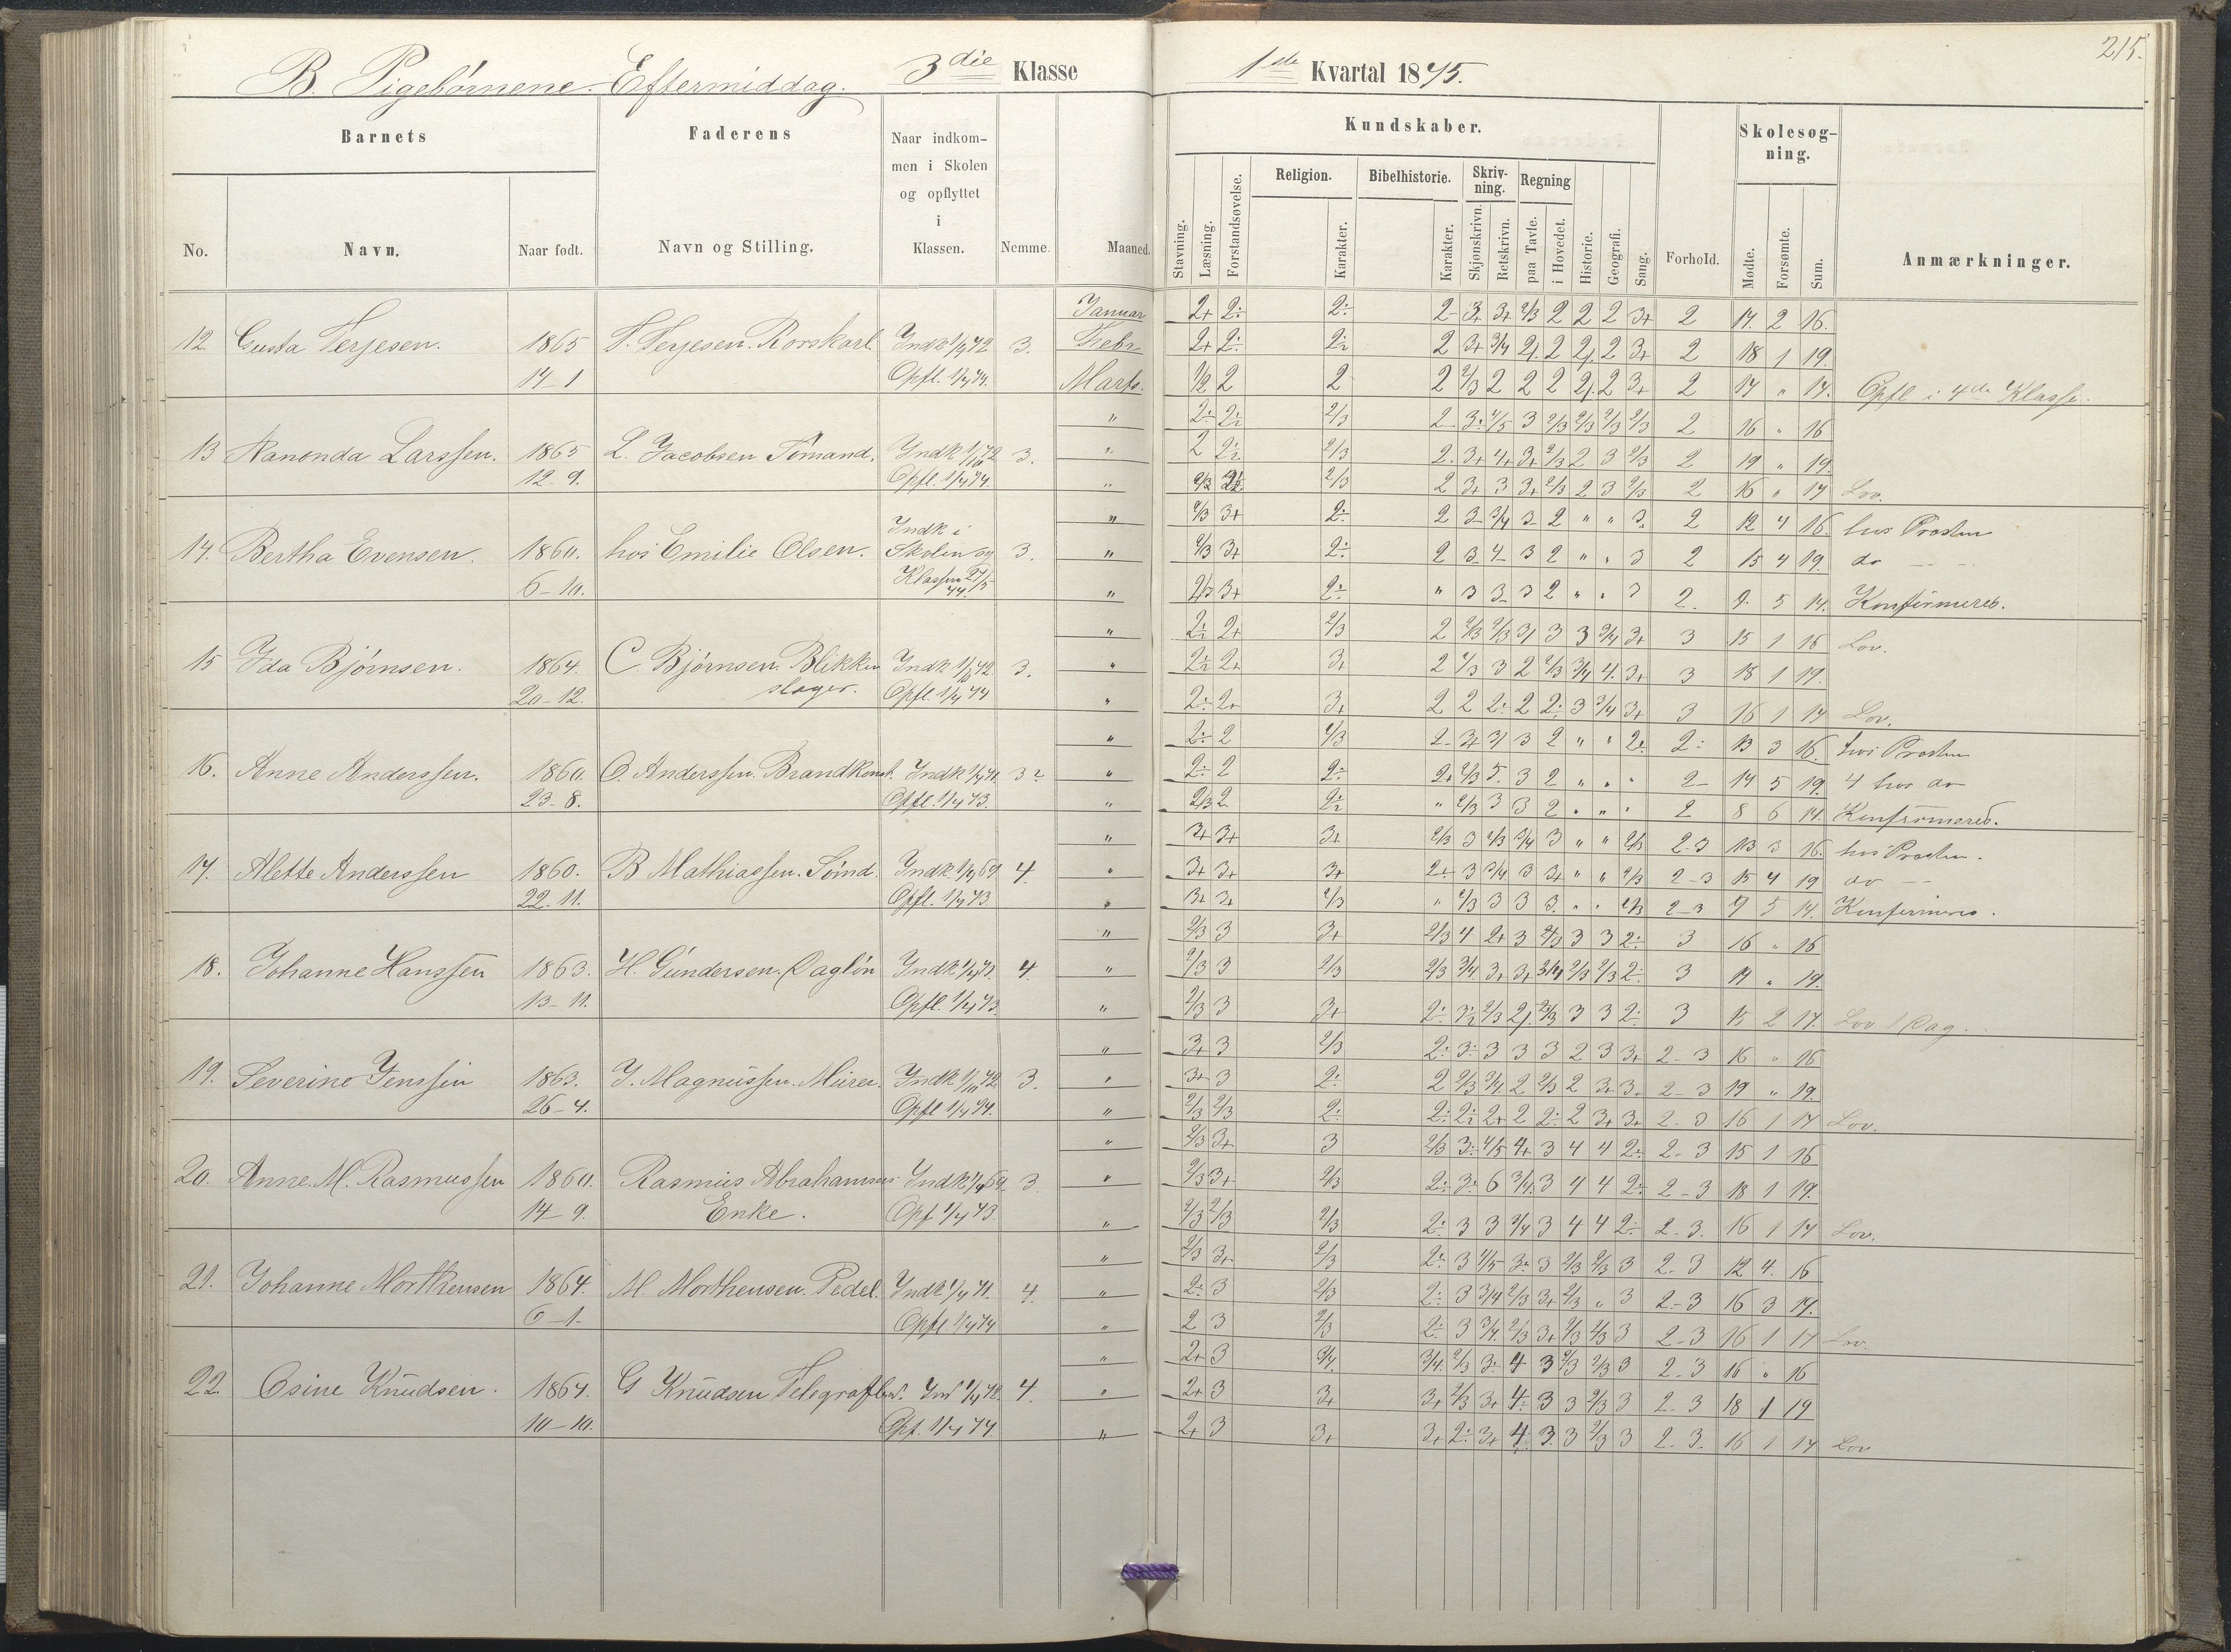 215.
B. Pigebørnene. Eftermiddag. 3die Klasse 1ste Kvartal 1875.
Barnets Faderens Naar indkommen i Skolen og opflyttet i Klassen. Nemme. Maaned. Kundskaber. Forhold. Skolesøgning. Anmærkninger.
No. Navn. Naar født. Navn og Stilling.
Stavning. Læsning. Forstandsøvelse. Religion. Karakter. Bibelhistorie. Karakter. Skrivning. Skjønskrivn. Retskrivn. Regning paa Tavle. i Hovedet. Historie. Geografi. Sang. Mødte. Forsømte. Sum.
Januar 2+ 2÷ 2÷ 2- 3+ 3+ 2/3 2 2 2 3+ 2 14. 2 16.
12. Gusta Terjesen. 1865 T. Terjesen. Rorskarl. Indk 1/4 72 3. Febr 2+ 2÷ 2÷ 2 3+ 3/4 2 2 2 2 3+ 2 18 1 19.
17-1 Opfl. 1/4 74. Marts. 1/2 2 2 2 2/3 2 2 2 2 2 3+ 2 17 " 17. Opfl i 4de Klasse.
" 2÷ 2÷ 2/3 2 3÷ 4/5 3 2/3 2/3 2/3 2/3 2 16 " 16
13 Nanonda Larssen. 1865 L. Jacobsen Sømand. Indk 1/10 72 3. " 2 2÷ 2/3 2. 3+ 4+ 3+ 2/3 2 3 2/3 2 19 " 19.
12-9. Opfl. 1/4 74. " 2/3 2/3 2 3+ 3 3+ 2/3 2 3 2/3 2 16 " 17 Lov.
" 2/3 3+ 2÷ 2 3- 3/4 3- 2 " " 3. 2 12 4 16. hos Prosten
14. Bertha Evensen. 1860. hos Emilie Olsen. Indk i Skolen og 3. " 2/3 3+ 2÷ 2 3 4- 3 2 " " 3 2 15 4 19. do
6-10. Klassen 27/5 74. " 2/3 3+ 2÷ " 3 3 3 2 " " 3 2. 9. 5 14. Konfirmeres.
" 2÷ 2+ 2/3 2 2/3 2/3 3 3 3 3/4 3+ 3 15 1 16 Lov.
15 Ida Bjørnsen. 1864. C. Bjørnsen. Blikken Indk 1/10 72. 3. " 2÷ 2+ 3+ 2 2/3 3 2 2/3 3/4 4. 3+ 3 18 1 19.
20-12. slager. Opfl. 1/4 74 " 2÷ 2+ 3+ 2 2 2÷ 2 2÷ 3 3/4 3+ 3 16 1 17 Lov.
" 2÷ 2 2/3 2- 3+ 3 3 2 " " 2÷ 2÷ 13 3 16. hos Prosten
16. Anne Anderssen. 1860. O. Anderssen. Brandkonst. Indk 1/4 71. 3 " 2÷ 2 2÷ 2+ 2/3 5. 3 2 " " " 2- 14 5 19. 4 hos do
23-8. Opfl. 1/4 73. " 2/3 2 2÷ " 2/3 3 3 2 " " " 2 8 6 14. Konfirmeres.
" 3+ 3+ 3+ 2/3 3 2/3 3/4 3 " " 2/3 2-3 13 3 16. hos Prosten.
17. Alette Anderssen 1860. B Mathiassen. Sømd. Indk 1/4 69 4. " 3+ 3+ 3+ 2÷ 3 3/4 3 3+ " " 2/3 2-3 15 4 19 do
22-11. Opfl. 1/4 73 " 3+ 3+ 2/3 " 2/3 3 3 3. " " 2/3 2-3 9 5 14. Konfirmeres.
" 2/3 3 3+ 2/3 4 2+ 3 2/3 3 3 2÷ 3 16 " 16
18. Johanne Hanssen 1863. H. Gundersen. Dagløn Indk 1/4 71. 4. " 2/3 3 2/3 2/3 3/4 3+ 3+ 3/4 2/3 2/3 2÷ 3 19 " 19.
13-11. Opfl. 1/4 73. " 2/3 3 3+ 2÷ 3÷ 2/3 2 2/3 3 3 2÷ 3 15 2 17. Lov 1 Dag.
" 3+ 3 2/3 2÷ 3÷ 3 3 3 2 3 3+ 2-3 16 " 16
19. Severine Jenssen 1863. J. Magnussen. Murer. Indk 1/11 72. 3. " 3+ 3 2÷ 2 2/3 3/4 2 2/3 2 3+ 3. 2-3 19 " 19.
26-4. Opfl 1/4 74. " 2/3 2/3 2÷ 2÷ 2÷ 2+ 2 2÷ 2 3+ 3+ 2-3 16 1 17 Lov.
" 2/3 3+ 3 2/3 3÷ 4/5 4+ 3 4 4 2÷ 2-3 15 1 16
20. Anne. M. Rasmussen 1860. Rasmus Abrahamsens Indk 1/4 69. 3 " 2/3 3+ 2/3 2÷ 3÷ 6 3/4 3 4 4 2÷ 2-3 18 1 19.
14-9. Enke. Opf 1/4 73. " 2/3 2/3 2/3 2÷ 3 3 3/4 3 4 4 2÷ 2-3. 16 1 17 Lov.
" 2/3 3+ 2/3 2÷ 3 4/5 3÷ 3 2/3 2/3 3 2-3 12 4. 16
21. Johanne Morthensen 1864. M. Morthensen. Pedel. Indk 1/4 71. 4. " 2÷ 3 2/3 2÷ 3 3/4 2/3 3+ 2/3 " 3 2-3 16 3 19.
6-1. Opfl. 1/4 74 " 2 3 2/3 2÷ 3 3/4. 2/3 3+ 2/3 2/3 3 2-3 16 1 17 Lov.
" 2+ 3 3/4 3/4. 2/3 3÷ 4 3 2/3 2/3 3 2-3 16 " 16
22. Osine Knudsen. 1864. G Knudsen Telegrafbud. Ind 1/4 72. 4. " 2+ 3 3+ 3+ 2/3 3+ 4÷ 3 3 2/3 3 2-3 18 1 19
10-10. Opf. 1/4 74. " 2+ 3 3+ 3+ 2÷ 3+ 4 3 3 2/3 3 2-3. 16 1 17 Lov